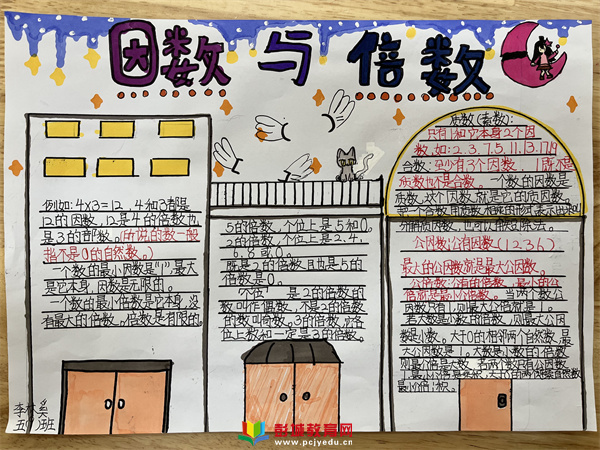 因数与倍数
例如: 4×3=12, 4和3都是
12的因数, 12是4的倍数也
是3的倍数。(所说的数一般
指不是0的自然数。)
一个数的最小因数是"1",最大
是它本身,因数是有限的。
一个数的最小倍数是它本身,没
有最大的倍数。倍数是有限的。
5的倍数,个位上是5和0。
2的倍数,个位上是2.4.
6.8或0。
既是2的倍数且也是5的
倍数是0。
个位 是2的倍数的
数叫作偶数,不是2的倍数
的数叫奇数。3的倍数,各
位上数和一定是3的倍数。
质数(素数):
只有1和它本身2个因
数,如:2.3.7.5.11.13.17.19
合数:至少有3个因数 1既不是
质数也不是合数。一个数的因数是
质数,这个因数就是它的质因数。
把一个合数用质数相乘的形式表示出来叫
分解质因数,也可以用短除法。
公因数:公有因数(1 2 3 6)
最大的公因数就是最大公因数。
公倍数:公有的倍数,最小的公
倍就是最小公倍数。当两个数公
因数只有1,则最大公倍就是1。
若大数是小数的倍数,则最大公因
数是小数。大于0的相邻两个自然数,最
大公因数是1。大数是小数的倍数
则最小公倍是大数,若两个数只有公因数
最小公倍:积。
李 奚
五 班
彭城教育网
www.pcjyedu.cn